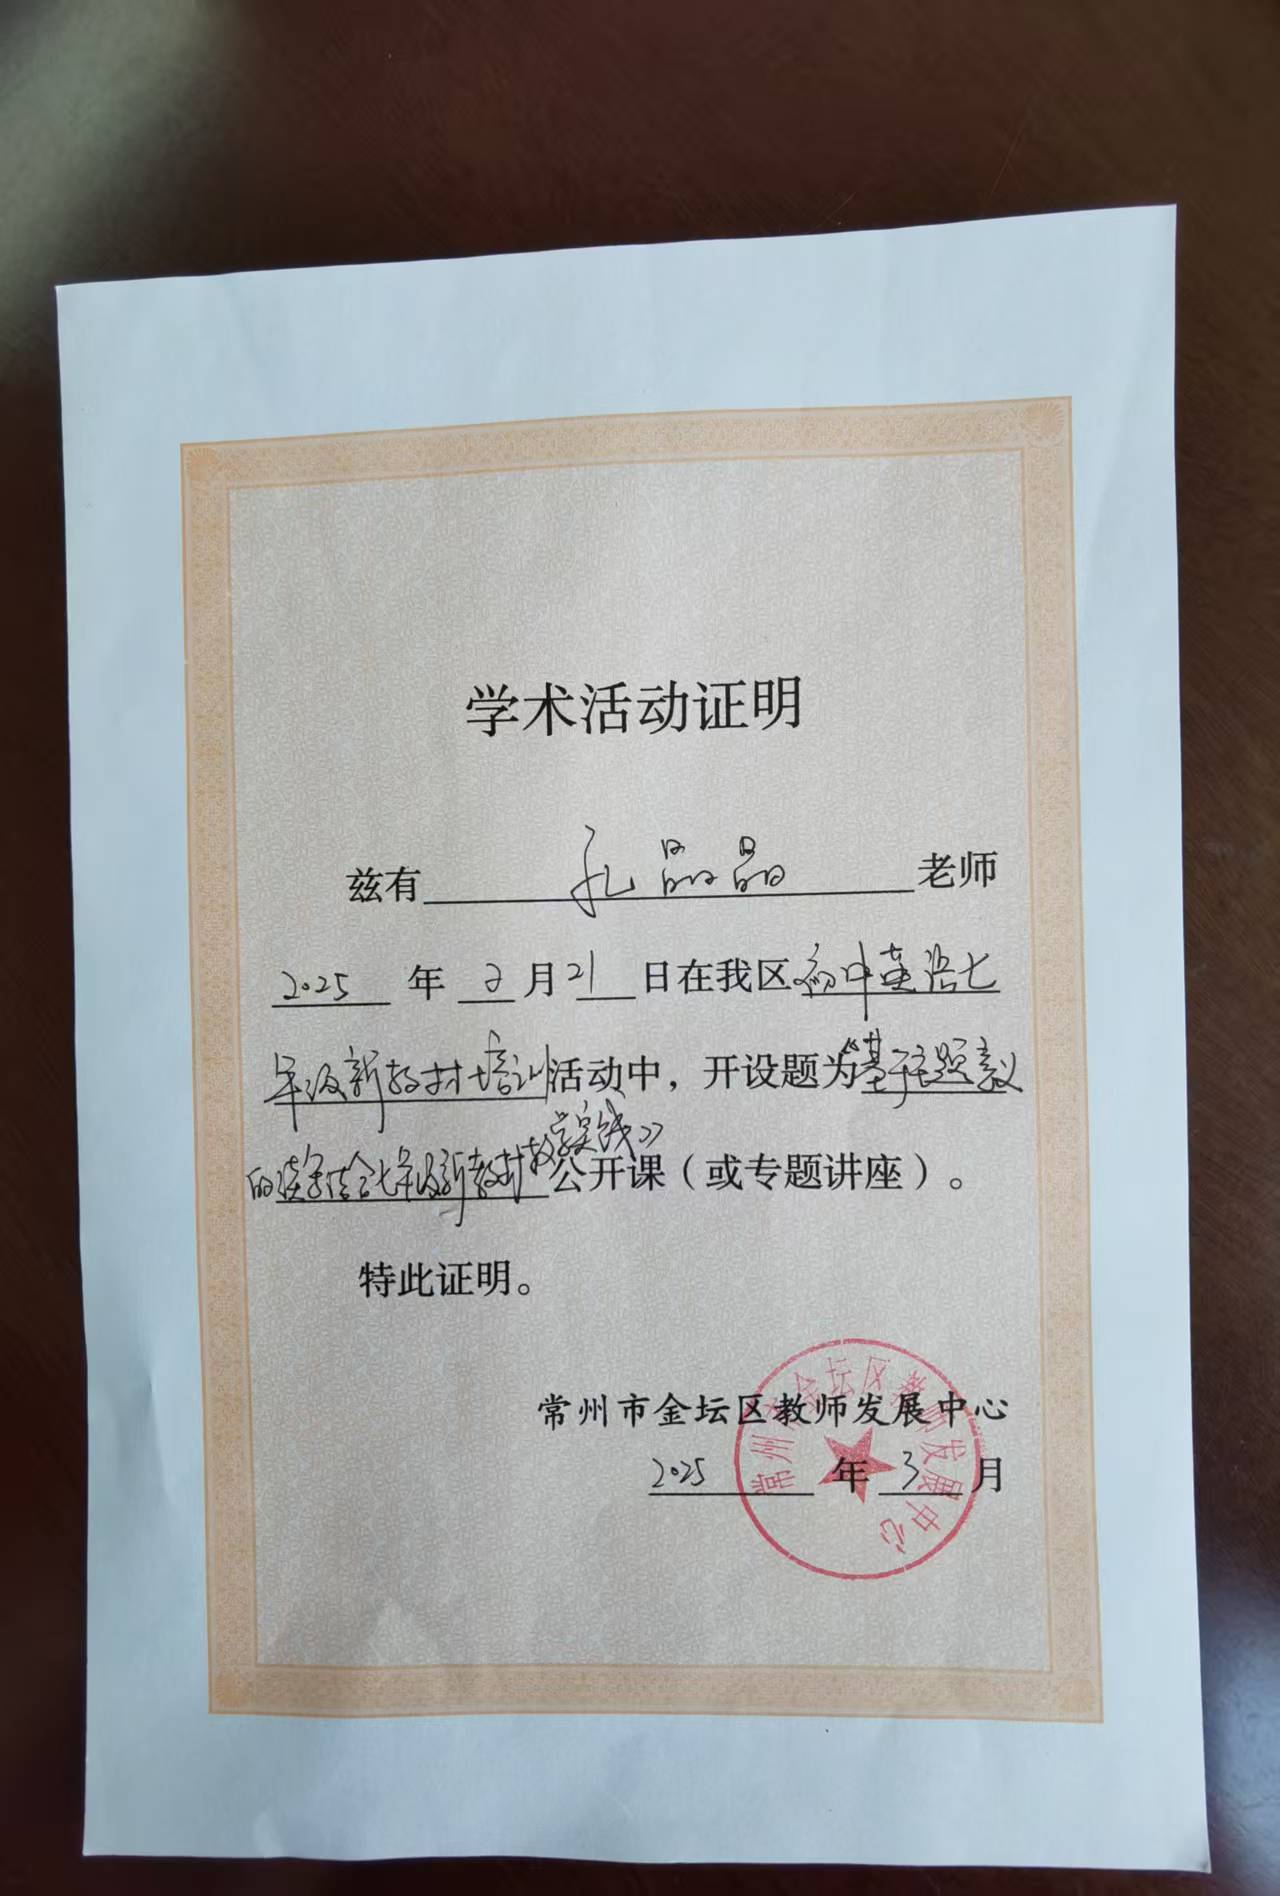 学术活动证明
兹有 孔晶晶 老师
2025 年 2 月 21 日在我区 初中英语七
年级新教材培训 活动中，开设题为 《基于主题意义
的读写结合七年级新教材教学实践》 公开课（或专题讲座）。
特此证明。
常州市金坛区教师发展中心
2025 年 3 月
常州市金坛区教师发展中心